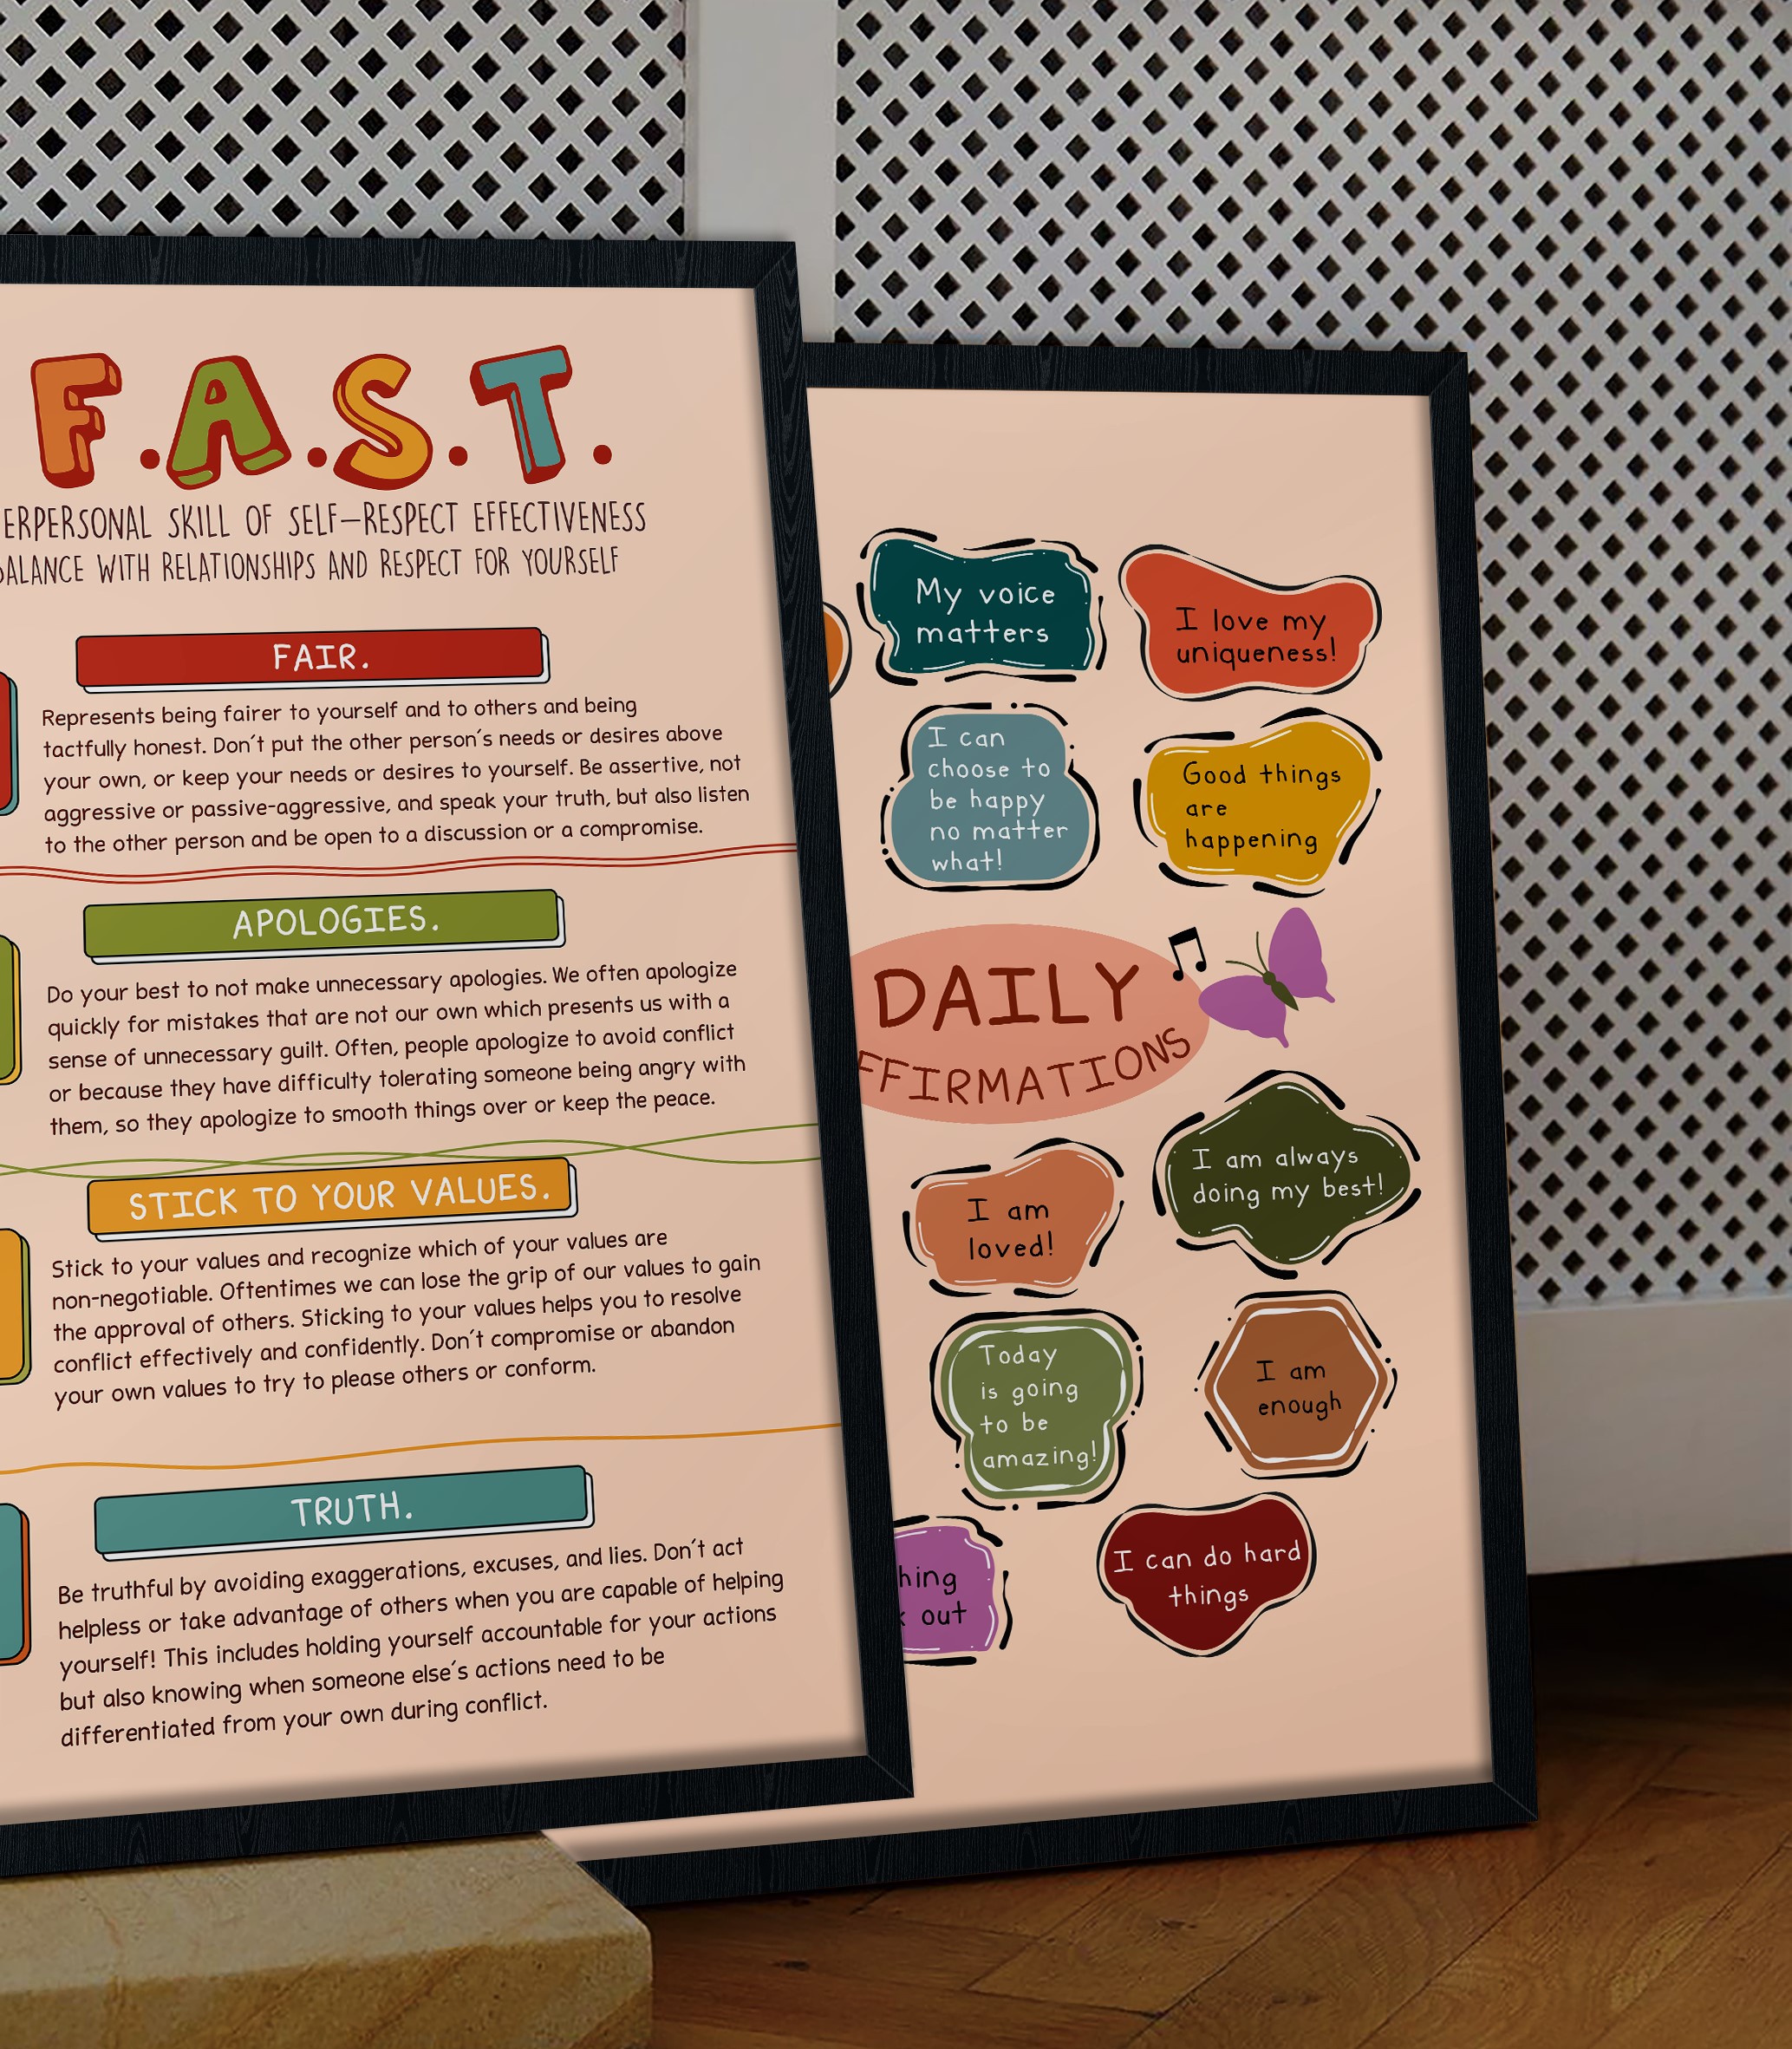 F.A.S.T.
SKILL OF SELF-RESPECT EFFECTIVENESS
WITH RELATIONSHIPS AND RESPECT FOR YOURSELF
FAIR.
Represents being fairer to yourself and to others and being
tactfully honest. Don't put the other person's needs or desires above
your own, or keep your needs or desires to yourself. Be assertive, not
aggressive or passive-aggressive, and speak your truth, but also listen
to the other person and be open to a discussion or a compromise.
APOLOGIES.
Do your best to not make unnecessary apologies. We often apologize
quickly for mistakes that are not our own which presents us with a
sense of unnecessary guilt. Often, people apologize to avoid conflict
or because they have difficulty tolerating someone being angry with
them, so they apologize to smooth things over or keep the peace.
STICK TO YOUR VALUES.
Stick to your values and recognize which of your values are
non-negotiable. Oftentimes we can lose the grip of our values to gain
the approval of others. Sticking to your values helps you to resolve
conflict effectively and confidently. Don't compromise or abandon
your own values to try to please others or conform.
TRUTH.
Be truthful by avoiding exaggerations, excuses, and lies. Don't act
helpless or take advantage of others when you are capable of helping
yourself! This includes holding yourself accountable for your actions
but also knowing when someone else's actions need to be
differentiated from your own during conflict.
My voice
matters
I love my
uniqueness!
I can
choose to
be happy
no matter
what!
Good things
are
happening
DAILY
FFIRMATIONS
I am
loved!
I am always
doing my best!
Today
is going
to be
amazing!
I am
enough
hing
out
I can do hard
things